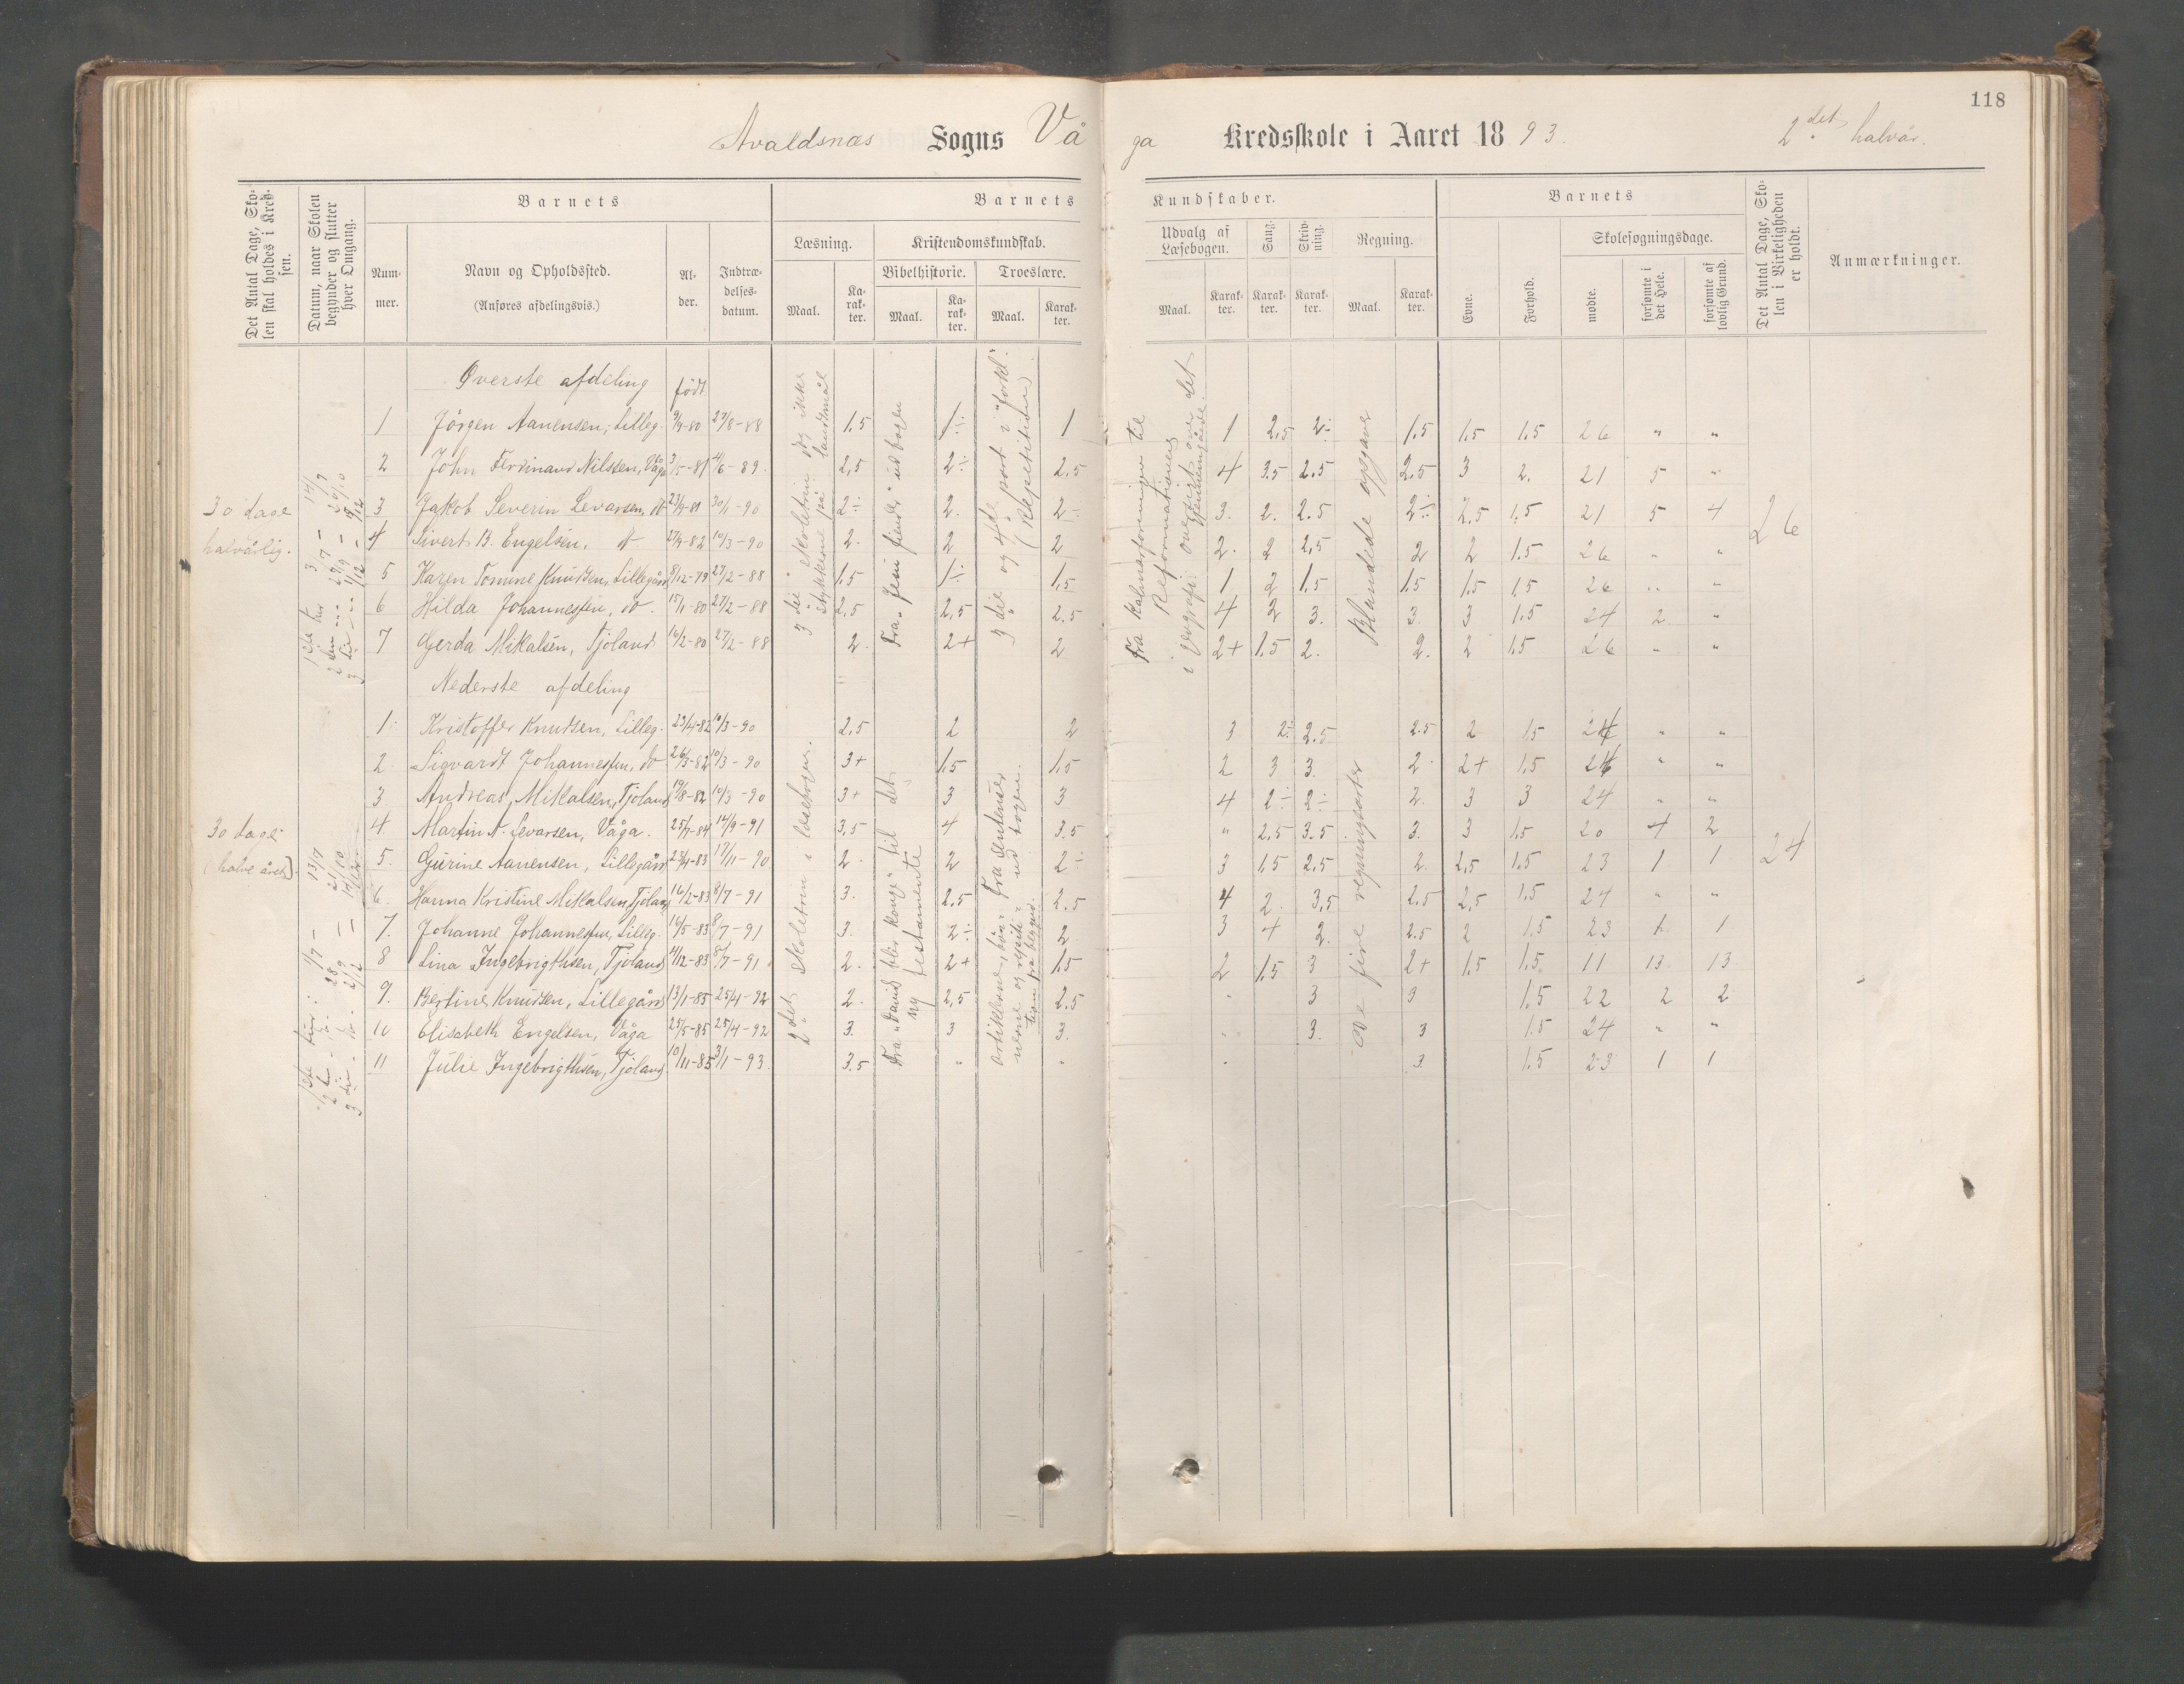 118
Avaldsnæs Sogns Våga Kredsskole i Aaret 1893. 2det halvår.
Det Antal Dage, Skolen skal holdes i Kredsen.
Datum, naar Skolen begynder og slutter hver Omgang.
Barnets
Barnets Kundskaber.
Barnets
Det Antal Dage, Skolen i Virkeligheden er holdt.
Anmærkninger.
Nummer.
Navn og Opholdssted.
(Anføres afdelingsvis.)
Alder.
Indtrædelsesdatum.
Læsning.
Kristendomskundskab.
Bibelhistorie.
Troeslære.
Udvalg af Læsebogen.
Sang.
Skrivning.
Regning.
Evne.
Forhold.
Skolesøgningsdage.
Maal. Karakter. Maal. Karakter. Maal. Karakter. Maal. Karakter. Karakter. Karakter. Maal. Karakter.
mødte. forsømte i det Hele. forsømte af lovlig Grund.
Øverste afdeling født
30 dage halvårlig.
3die skoletrin dog ikke stykkerne på landsmål
Fra "Jesu fiender" ud bogen
3die og 4de part i "forkl". (Repetition)
Fra Kalmarforeningen til Reformationen
i Geografi: oversigt over det
Blandede opgaver
26
1 Jörgen Aanensen, Lilleg. 9/9-80 27/8-88 1,5 1÷ 1 1 2,5 2÷ 1,5 1,5 1,5 26 " "
2 John Ferdinand Nilssen, Våga 3/5-81 4/6-89. 2,5 2÷ 2.5 4 3.5 2.5 2.5 3 2. 21 5 "
3 Jakob Severin Levarsen, do 23/9-81 30/1-90 2÷ 2. 2÷ 3. 2. 2.5 2÷ 2.5 1,5 21 5 4
4 Sivert B. Engelsen, do 27/9-82 10/3-90 2. 2 2 2. 2 2,5 2 2 1.5 26 " "
5 Karen Tomine Knudsen, Lillegård 8/12-79 27/2-88 1,5 1÷ 1,5 1 2 1,5 1.5 1.5 1,5 26 " "
6 Hilda Johannessen, do. 15/1-80 27/2-88 2,5 2,5 2.5 4 2 3. 3. 3 1.5 24 2 "
7 Gerda Mikalsen, Tjoland 16/2-80 27/2-88 2. 2+ 2 2+ 1.5 2. 2. 2 1.5 26 " "
Nederste afdeling
30 dage (halve året).
2det skoletrin i læsebogen.
Fra "David blir konge" til det ny testamente
De fire regningsarter
24
1. Kristoffer Knudsen, Lilleg. 23/4-82 10/3-90 2,5 2 2 3 2÷ 2.5 2.5 2 1.5 24 " "
2. Sigvardt Johannessen, do 26/3-82 10/3-90 3+ 1,5 1,5 2 3 3. 2. 2+ 1,5 24 " "
3 Andreas Mikalsen, Tjoland 19/8-82 10/3-90 3+ 3 3 4 2÷ 2÷ 2. 3 3 24 " "
4. Martin A. Levarsen, Våga. 25/7-84 14/9-91 3,5 4 3.5 " 2.5 3.5. 3. 3 1,5 20 4 2
5. Gurine Aanensen, Lillegård 23/4-83 17/11-90 2. 2 2÷ 3 1,5 2,5 2. 2,5 1.5 23 1 1
6. Hanna Kristine Mikalsen, Tjoland 16/2-83 8/7-91 3. 2,5 2.5 4 2. 3,5 2.5 2,5 1.5 24 " "
7. Johanne Johannessen, Lilleg. 16/5-83 8/7-91 3. 2÷ 2. 3 4 2. 2.5 2 1.5 23 1 1
8 Lina Ingebrigthsen, Tjoland 4/12-83 8/7-91 2. 2+ 1,5 2 1,5 3 2+ 1.5 1,5. 11 13 13
9. Bertine Knudsen, Lillegård 13/1-85 25/4-92 2. 2,5 2.5 3 3 1,5 22 2 2
10 Elisabeth Engelsen, Våga 25/5-85 25/4-92 3. 3 3. 3. 3 1.5 24 " "
11 Julie Ingebrigthsen, Tjoland 10/11-85 3/1-93. 3.5 " " 3. 1.5 23 1 1